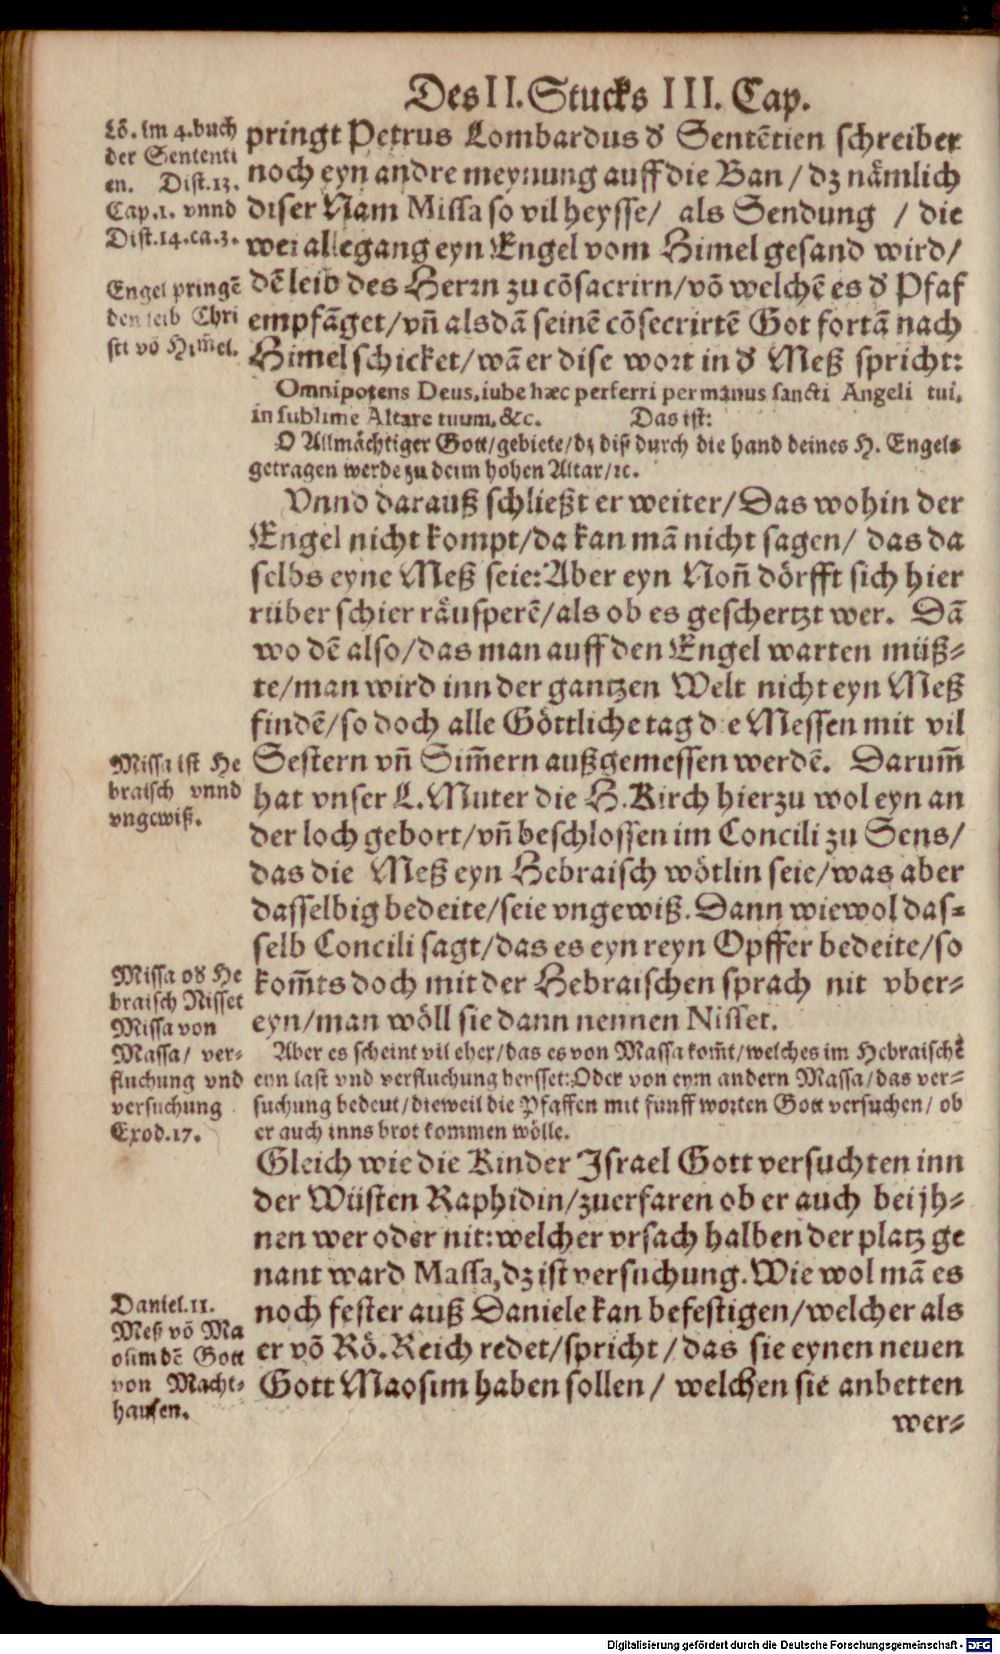 Des II. Stucks III. Cap.
Lõ. im 4. buch
der Sententi
en. Dist. 13.
Cap. 1. vnnd
Dist. 14. ca. 3.
Engel pringẽ
den leib Chri
sti võ Him̃el.
pringt Petrus Lombardus ď Sentẽtien schreiber
noch eyn andre meynung auff die Ban / dz nämlich
diser Nam Missa so vil heysse / als Sendung / die
wei allegang eyn Engel vom Himel gesand wird /
dẽ leib des Herrn zu cõsacrirn / võ welchẽ es ď Pfaf
empfãget / vñ alsdã seinẽ cõsecrirtẽ Got fortã nach
Himel schicket / wã er dise wort in ď Meß spricht:
Omnipotens Deus, iube hæc perferri per manus sancti Angeli tui,
in sublime Altare tuum, &c. Das ist:
O Allmächtiger Gott / gebiete / dz diß durch die hand deines H. Engels
getragen werde zu deim hohen Altar / ꝛc.
Vnnd darauß schließt er weiter / Das wohin der
Engel nicht kompt / da kan mã nicht sagen / das da
selbs eyne Meß seie: Aber eyn Noñ dörfft sich hier
rüber schier räusperẽ / als ob es geschertzt wer. Dã
wo dẽ also / das man auff den Engel warten müß-
te / man wird inn der gantzen Welt nicht eyn Meß
findẽ / so doch alle Göttliche tag d e Messen mit vil
Missa ist He
braisch vnnd
vngewiß.
Sestern vñ Sim̃ern außgemessen werdẽ. Darum̃
hat vnser L. Muter die H. Kirch hierzu wol eyn an
der loch gebort / vñ beschlossen im Concili zu Sens /
das die Meß eyn Hebraisch wötlin seie / was aber
dasselbig bedeite / seie vngewiß. Dann wiewol das-
selb Concili sagt / das es eyn reyn Opffer bedeite / so
Missa oď He
braisch Nisset
Missa von
Massa / ver-
fluchung vnd
versuchung
Exod. 17.
kom̃ts doch mit der Hebraischen sprach nit vber-
eyn / man wöll sie dann nennen Nisset.
Aber es scheint vil eher / das es von Massa kom̃t / welches im Hebraischẽ
eyn last vnd verfluchung heysset: Oder von eym andern Massa / das ver-
suchung bedeut / dieweil die Pfaffen mit fünff worten Gott versuchen / ob
er auch inns brot kommen wölle.
Gleich wie die Kinder Israel Gott versuchten inn
der Wüsten Raphidin / zuerfaren ob er auch bei jh-
nen wer oder nit: welcher vrsach halben der platz ge
nant ward Massa, dz ist versuchung. Wie wol mã es
Daniel. 11.
Meß võ Ma
osim dẽ Gott
von Macht-
hausen.
noch fester auß Daniele kan befestigen / welcher als
er võ Rö. Reich redet / spricht / das sie eynen neuen
Gott Maosim haben sollen / welchen sie anbetten
wer-
Digitalisierung gefördert durch die Deutsche Forschungsgemeinschaft - DFG